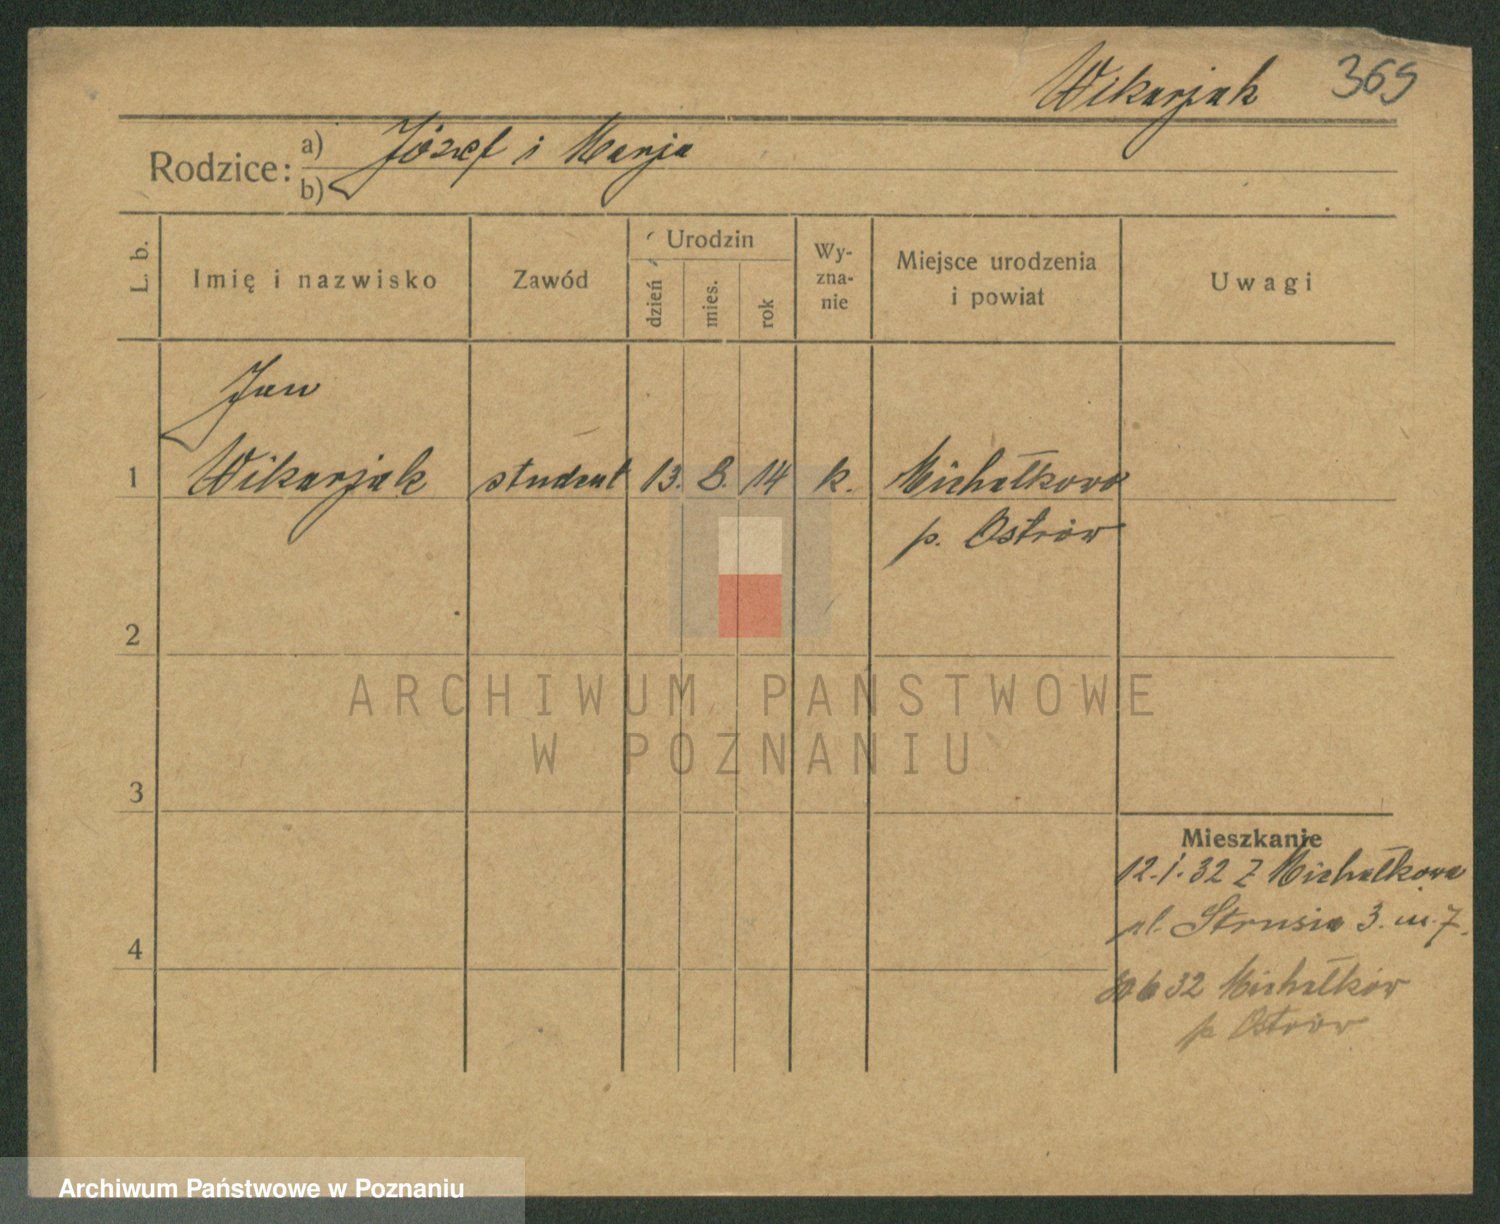 Wikarjak 369
Rodzice: a) Józef i Marja
b)
L. b. Imię i nazwisko Zawód Urodzin dzień mies. rok Wy-zna-nie Miejsce urodzenia i powiat Uwagi
Jan
1 Wikarjak student 13. 8. 14 k. Michałkowo
p. Ostrów
2
ARCHIWUM PAŃSTWOWE
W POZNANIU
3
Mieszkanie
12.1.32 z Michałkowa
pl. Strusia 3. m. 7.
4
6 32 Michałków
p Ostrów
Archiwum Państwowe w Poznaniu